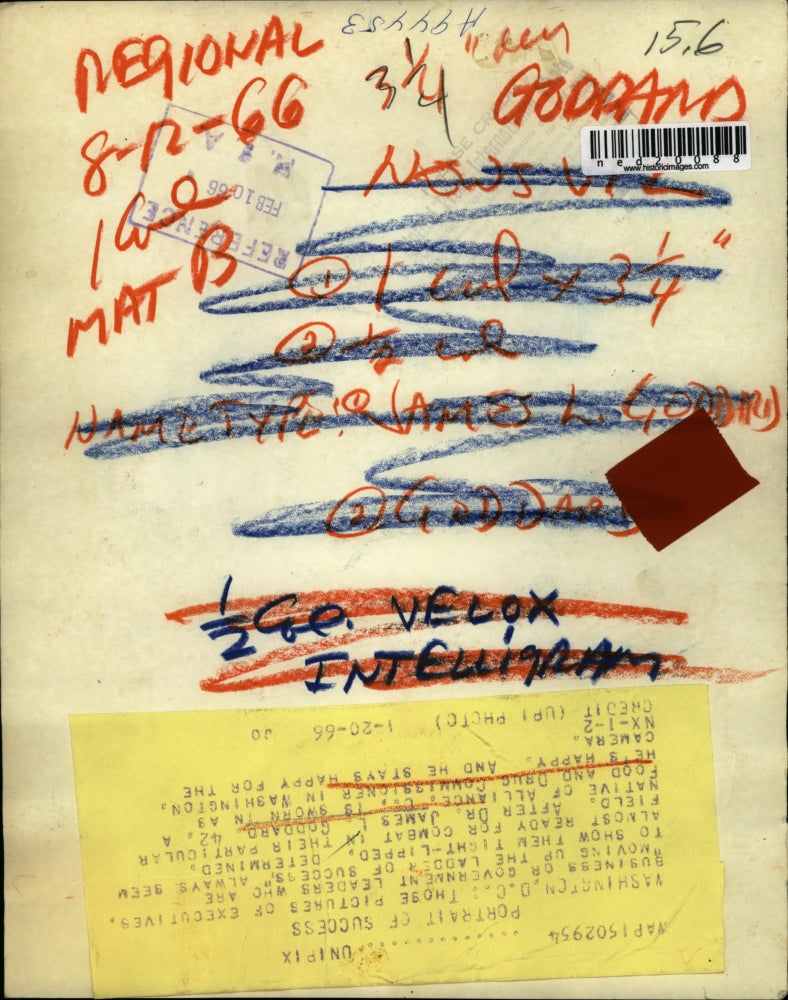 A94453
REGIONAL
3 1/4"
15.6
GODDARD
8-12-66
ned20088
www.historicimages.com
NEWS
N.E.A.
FEB 10 66
REFERENCE
1 Col
MAT B
① 1 col x 3 1/4"
② 1/2 col
NAME TYPE: ① JAMES L. GODDARD
② GODDARD
1/2 Col. VELOX
INTELLIGRAM
UNIPIX
WAP1502954
PORTRAIT OF SUCCESS
WASHINGTON, D.C.: THOSE PICTURES OF EXECUTIVES,
BUSINESS OR GOVERNMENT LEADERS WHO ARE
"MOVING UP THE LADDER OF SUCCESS," ALWAYS SEEM
TO SHOW THEM TIGHT-LIPPED. DETERMINED.
ALMOST READY FOR COMBAT IN THEIR PARTICULAR
FIELD. AFTER DR. JAMES L GODDARD, 42, A
NATIVE OF ALLIANCE O., IS SWORN IN AS
FOOD AND DRUG COMMISSIONER IN WASHINGTON,
HE'S HAPPY. AND HE STAYS HAPPY FOR THE
CAMERA.
NX-1-2
CREDIT (UPI PHOTO) 1-20-66 JO